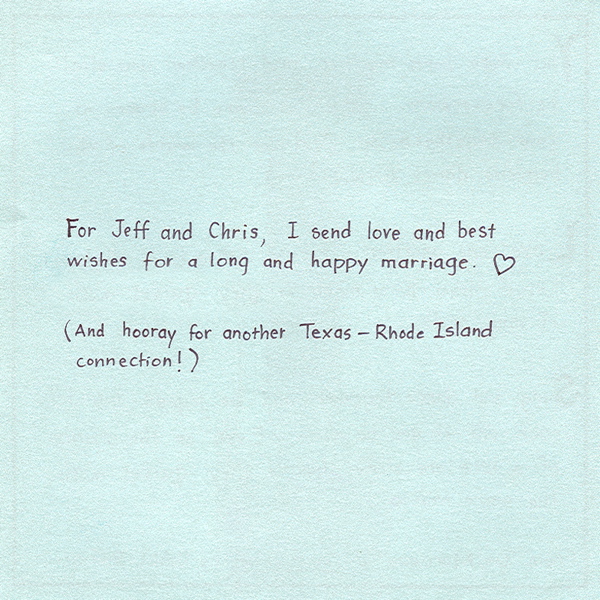 For Jeff and Chris, I send love and best
wishes for a long and happy marriage. ♡
(And hooray for another Texas – Rhode Island
connection!)